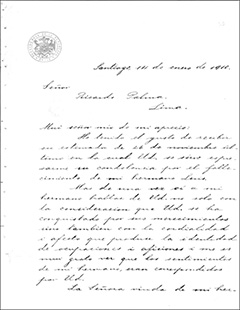 Santiago, 14 de enero de 1910.
Señor
Ricardo Palma.
Lima.
Mui señor mio de mi aprecio:
He tenido el gusto de recibir
su estimada de 26 de noviembre úl-
timo en la cual Ud. se sirve espre-
sarme su condolencia por el falle-
cimiento de mi hermano Luis.
Mas de una vez oí a mi
hermano hablar de Ud. no solo con
la consideracion que Ud. se ha
conquistado por sus merecimientos
sino tambien con la cordialidad
i afecto que produce la identidad
de ocupaciones i aficiones i me es
mui grato ver que los sentimientos
de mi hermano, eran correspondidos
por Ud.
La Señora viuda de mi her-